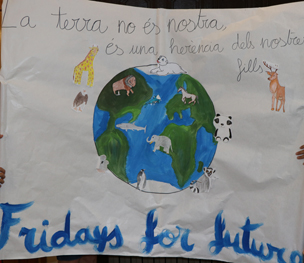 La terra no és nostra
és una herència dels nostres
fills
Fridays for future